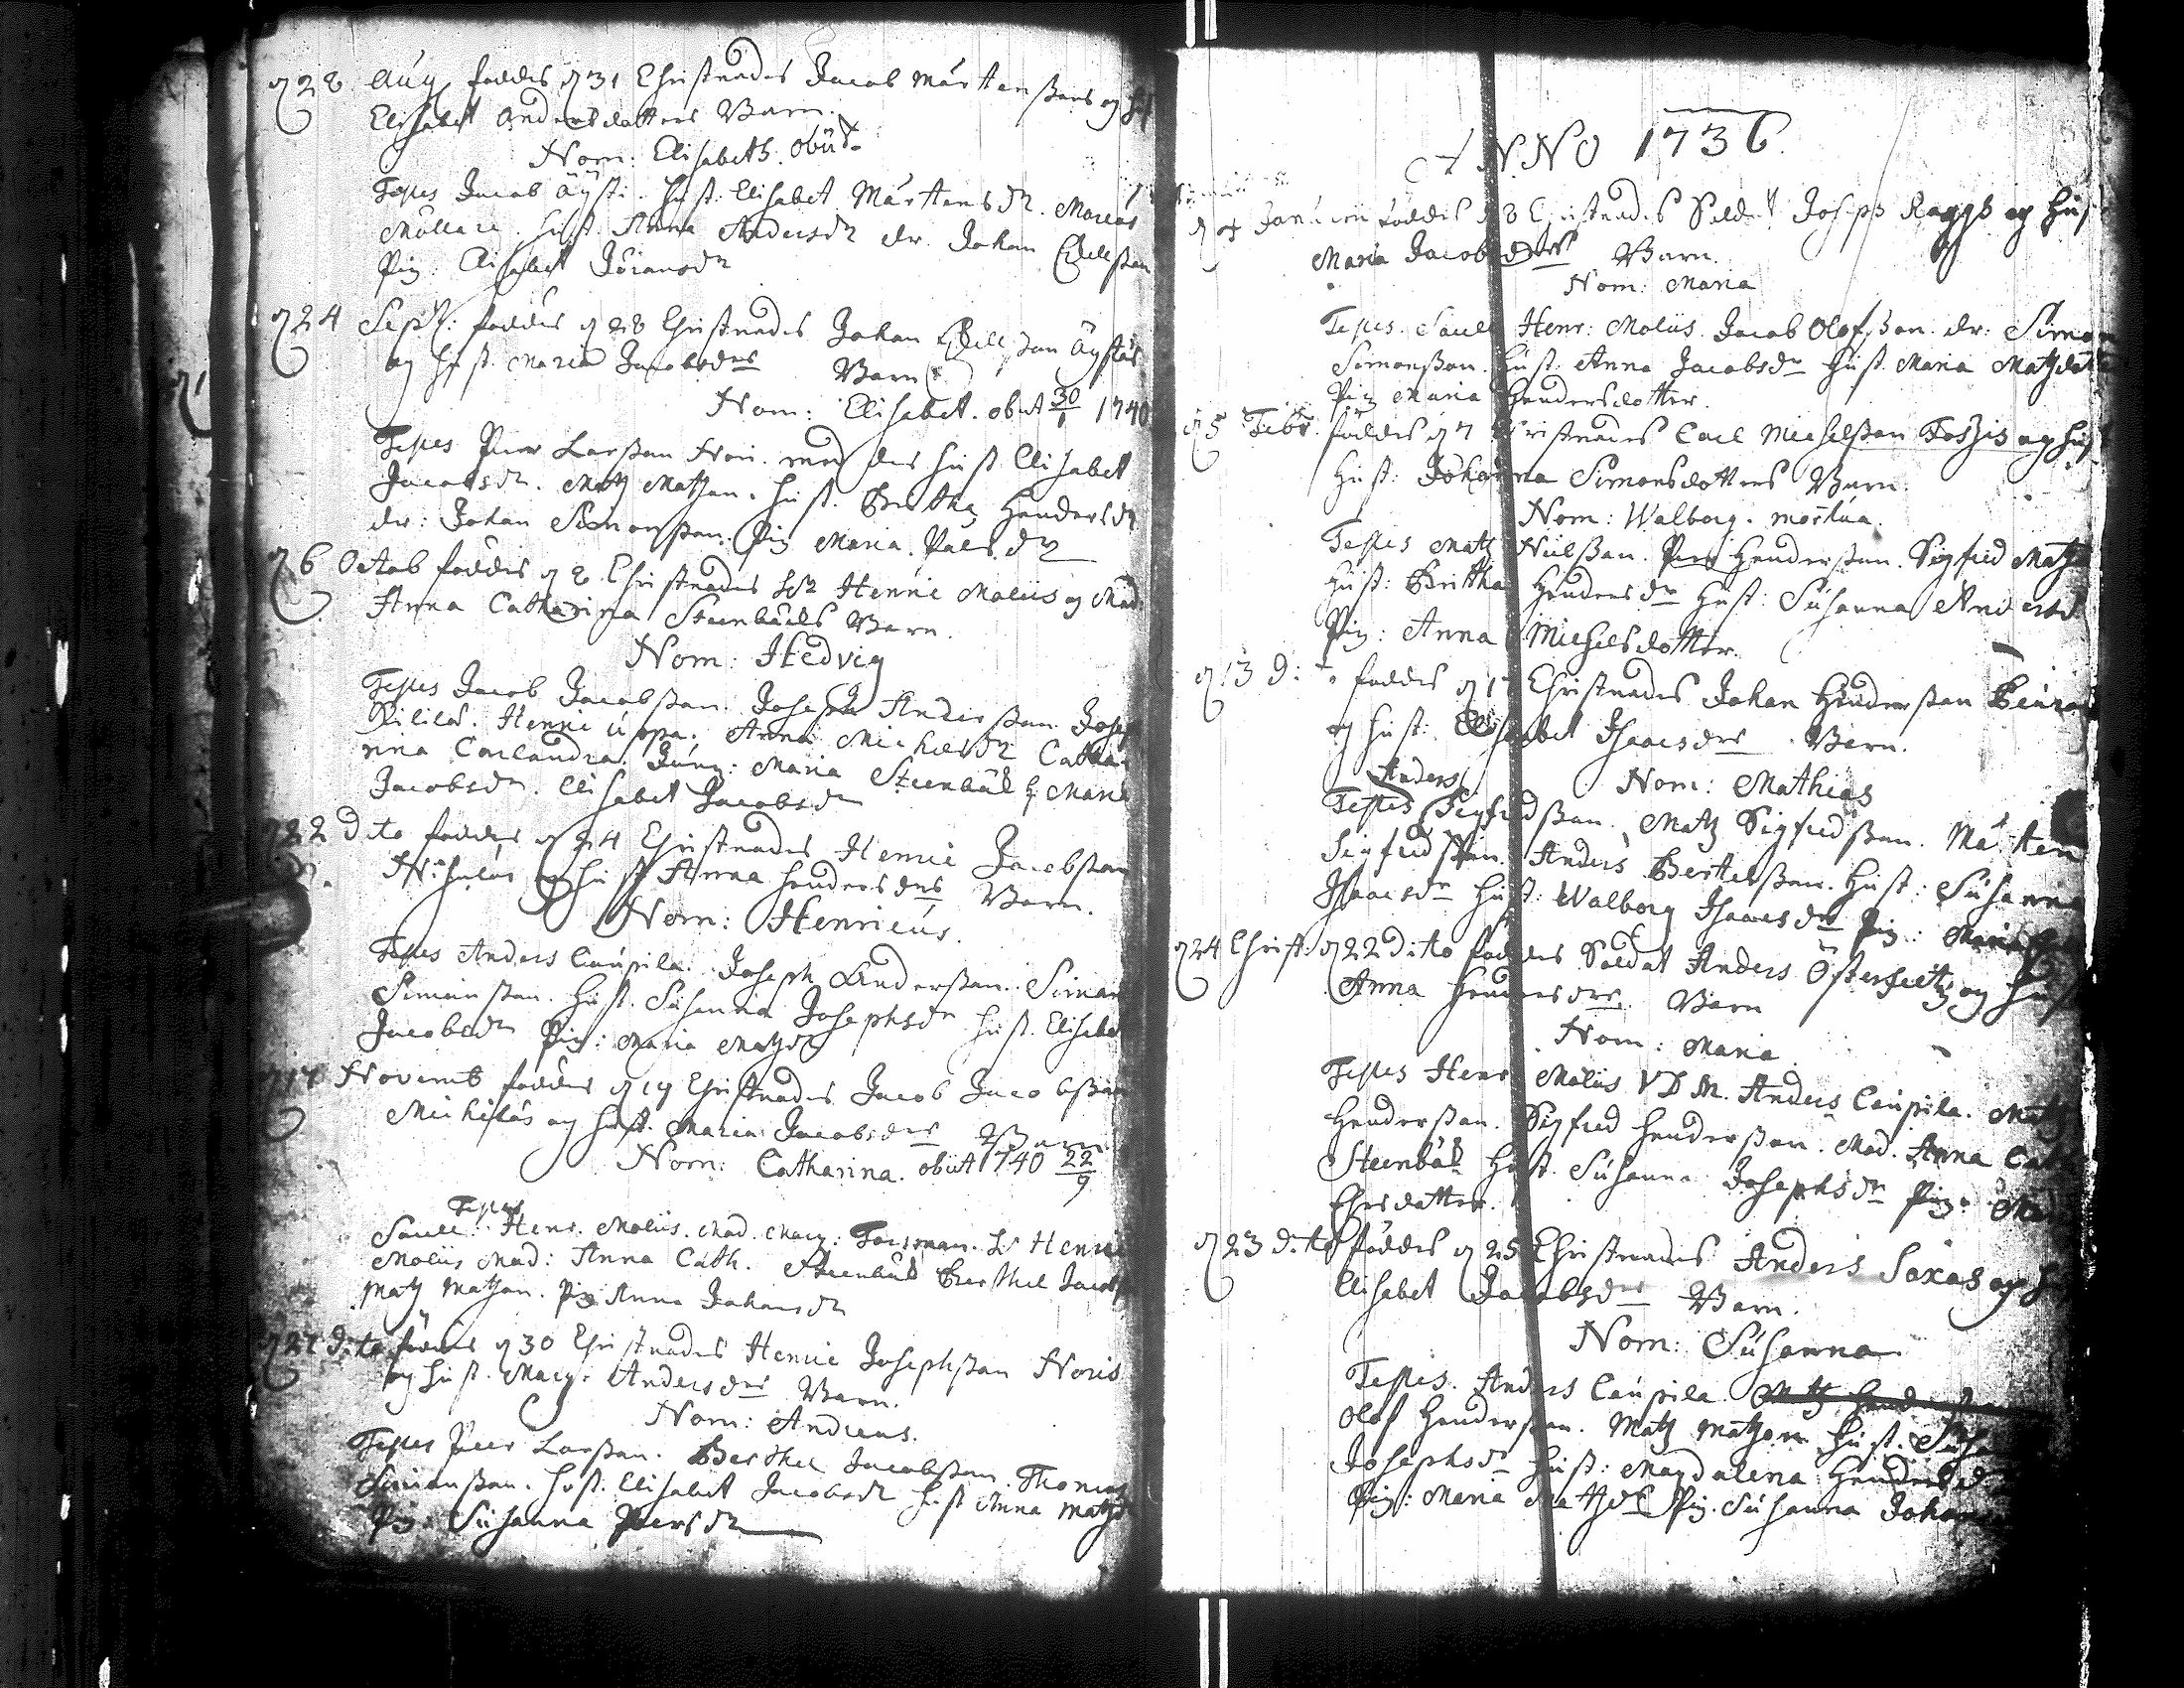 d 28 Aug föddes d 31 Christnades Jacob Mårtenßons og H
Elisabet Andersdotters Barn.
Nom: Elisabeth. obiit.
Testes Jacob Äysti. Hust. Elisabet Mårtensdr. Marcus
Mollare. Hust. Anna Andersdr dr. Johan Eskelßon
Pig. Elisabet Jöransdr
d 24 Sept: föddes d 28 Christnades Johan Eskelßon Äystis
og Hust. Maria Jacobsdrs Barn
Nom: Elisabet. obiit 30/1 1740
Testes Peer Larßon Nori. med des Hust Elisabet
Jacobsdr. Matz Matzon. Hust. Britha Hendersdr
dr: Johan Simonßon. Pig Maria Pálsdr
d 6 Octob föddes d 8 Christnades Henric Moliis og Mad.
Anna Catharina Steenbäcks Barn.
Nom: Hedvig
Testes Jacob Jacobßon. Joseph Anderßon. Joseph
Henric Anna Michelsdr Catha-
rina Corlandra. Jung: Maria Steenbäck & Maria
Jacobsdr. Elisabet Jacobsdr
d 22 dito föddes d 24 Christnades Henric Jacobßon
og Hust Anna Hendersdrs Barn.
Nom: Henricus.
Testes Anders Caupila. Joseph Anderßon. Simon
Simonßon. Hust. Susanna Josephsdr Hust. Elisabet
Jacobsdr Pig: Maria Matzdr
d 17 Novemb föddes d 19 Christnades Jacob Jacobßon
og Hust. Maria Jacobsdrs Barn
Nom: Catharina. obiit 1740 22/9
Testes
Sacell. Henr. Moliis. Mad. Marg: Forsman. Henric
Moliis Mad: Anna Cath. Steenbäck Berthel Jacobß
Matz Matzon. Pig Anna Johansdr
d 27 dito föddes d 30 Christnades Henric Josephßon Noris
og Hust. Marg: Andersdrs Barn.
Nom: Andreas.
Testes Peer Larßon. Berthel Jacobßon. Thomas
Simonßon. Hust. Elisabet Jacobsdr Hust Anna Matzd
Pig. Susanna Peersdr
ANNO 1736
d 4 Januarii föddes d 8 Christnades Soldat Joseph Raggß og Hust
Maria Jacobsdrs Barn.
Nom: Maria
Testes. Sacell Henr: Molius. Jacob Olofßon. dr: Simon
Simonßon. Hust. Anna Jacobsdr Hust. Maria Matzdot
Pig Maria Hendersdotter.
d 5 Febr. föddes d 7 Christnades Carl Michelßon Foßis og Hust
Hust: Johanna Simonsdotters Barn.
Nom: Walborg. mortua.
Testes Matz Nilßon. Per Henderßon. Sigfred Matz
Hust: Brittha Hendersdr Hust: Susanna Andersd
Pig: Anna Michelsdotter.
d 13 d:to föddes d 17 Christnades Johan Henderßon
og Hust: Elisabet Isaacsdrs Barn.
Nom: Mathias
Anders
Testes Sigfredßon. Matz Sigfredßon. Mårten
Sigfredßon. Anders Bertelßon. Hust: Susanna
Isaacsdr Hust: Walborg Isaacsdr Pig: Maria
d 24 Christ: d 22 dito föddes Soldat Anders Österfeltz og Hust
Anna Hendersdrs. Barn
Nom: Maria
Testes Henr Molius VDM. Anders Caupila. Matz
Henderßon. Sigfred Henderßon. Mad. Anna Cath
Steenbäck Hust. Susanna Josephsdr Pig.
d 23 dito föddes d 25 Christnades Anders Saxas og H
Elisabet Jacobsdrs Barn.
Nom: Susanna
Testes. Anders Caupila Matz Henderßon
Olof Henderßon. Matz Matzon. Hust. Susa
Josephsdr Hust: Magdalena Hendersd
Pig: Maria Matzdr Pig. Susanna Johan